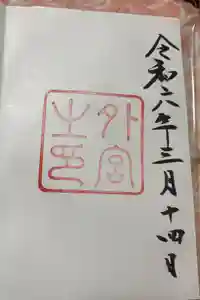 令和六年三月十四日
外宮
之印